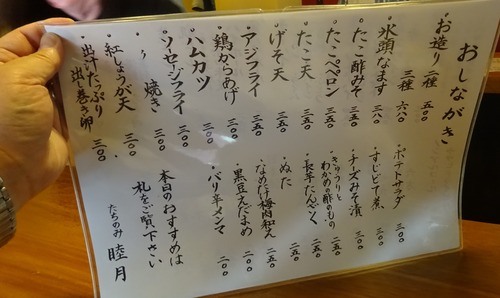 おしながき
お造り 二種 五〇〇
三種 六八〇
氷頭なます 三八〇
たこ酢みそ 三五〇
たこペペロン 三五〇
たこ天 三五〇
げそ天 三五〇
アジフライ 三五〇
鶏からあげ 三〇〇
ハムカツ 三〇〇
ソーセージフライ 三〇〇
〃 焼き 三〇〇
紅しょうが天 三〇〇
出汁たっぷり
出し巻き卵 三〇〇
ポテトサラダ 三〇〇
すじどて煮 三五〇
チーズみそ漬 二五〇
きゅうりと
わかめの酢のもの 二五〇
長芋たんざく 二五〇
ぬた 二五〇
なめたけ梅肉和え 二五〇
黒豆えだまめ 二〇〇
バリ辛メンマ 二〇〇
本日のおすすめは
札をご覧下さい
たちのみ 睦月